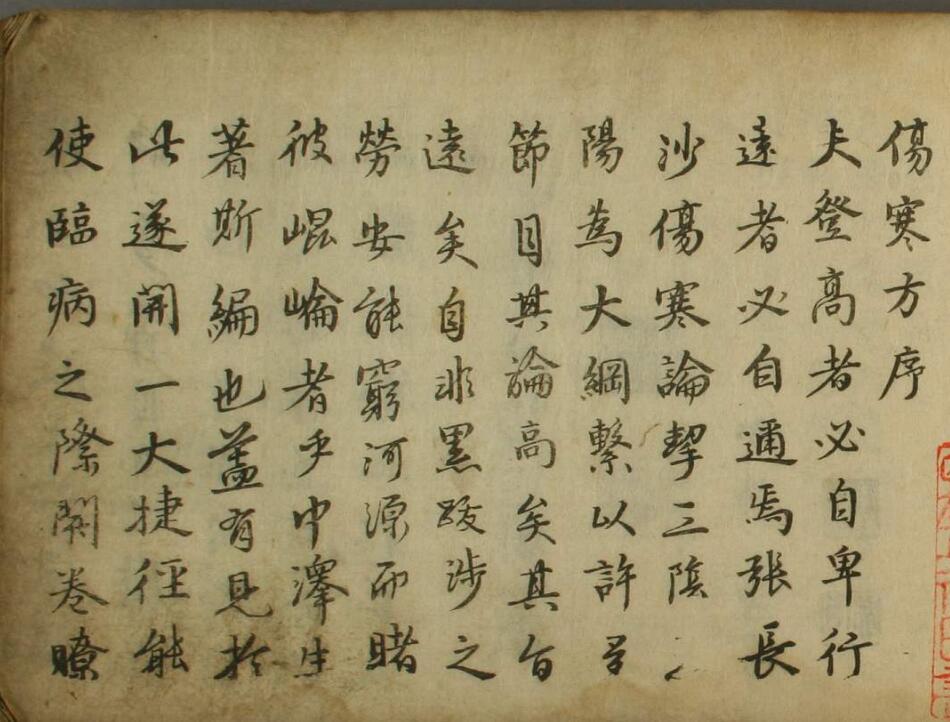 傷寒方序
夫登高者必自卑行
遠者必自邇焉張長
沙傷寒論挈三陰
陽為大綱繫以許多
節目其論高矣其旨
遠矣自非黒跋涉之
勞安能窮河源而睹
彼崐崘者乎中澤生
著斯編也蓋有見於
此遂開一大捷徑能
使臨病之際開卷瞭